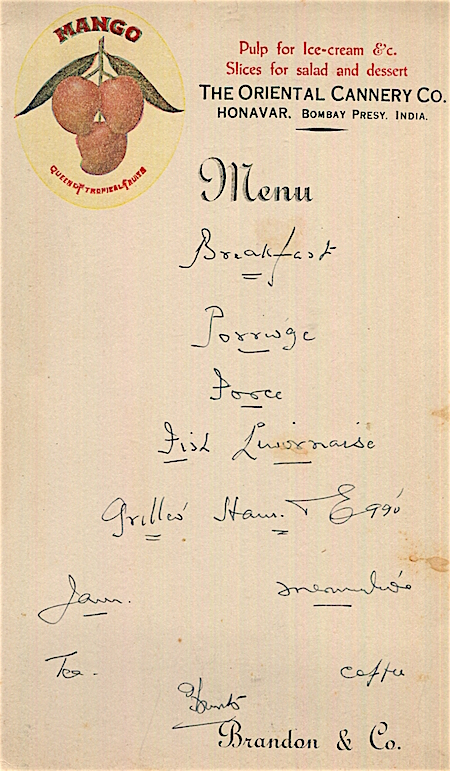 MANGO
QUEEN OF TROPICAL FRUITS
Pulp for Ice-cream &c.
Slices for salad and dessert
THE ORIENTAL CANNERY CO.
HONAVAR, BOMBAY PRESY, INDIA.
Menu
Breakfast
Porridge
Force
Fish Livornaise
Grilled Ham & Eggs
Jam. Marmalade
Tea. Coffee
Brandon & Co.